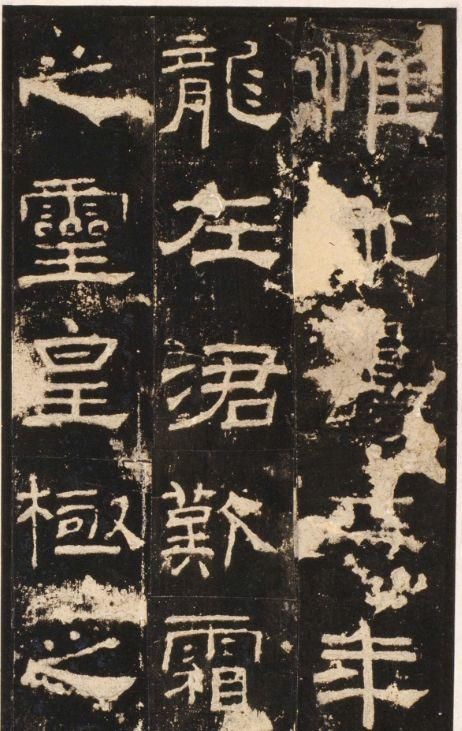 惟年
龍在涒歎霜
之靈皇極之